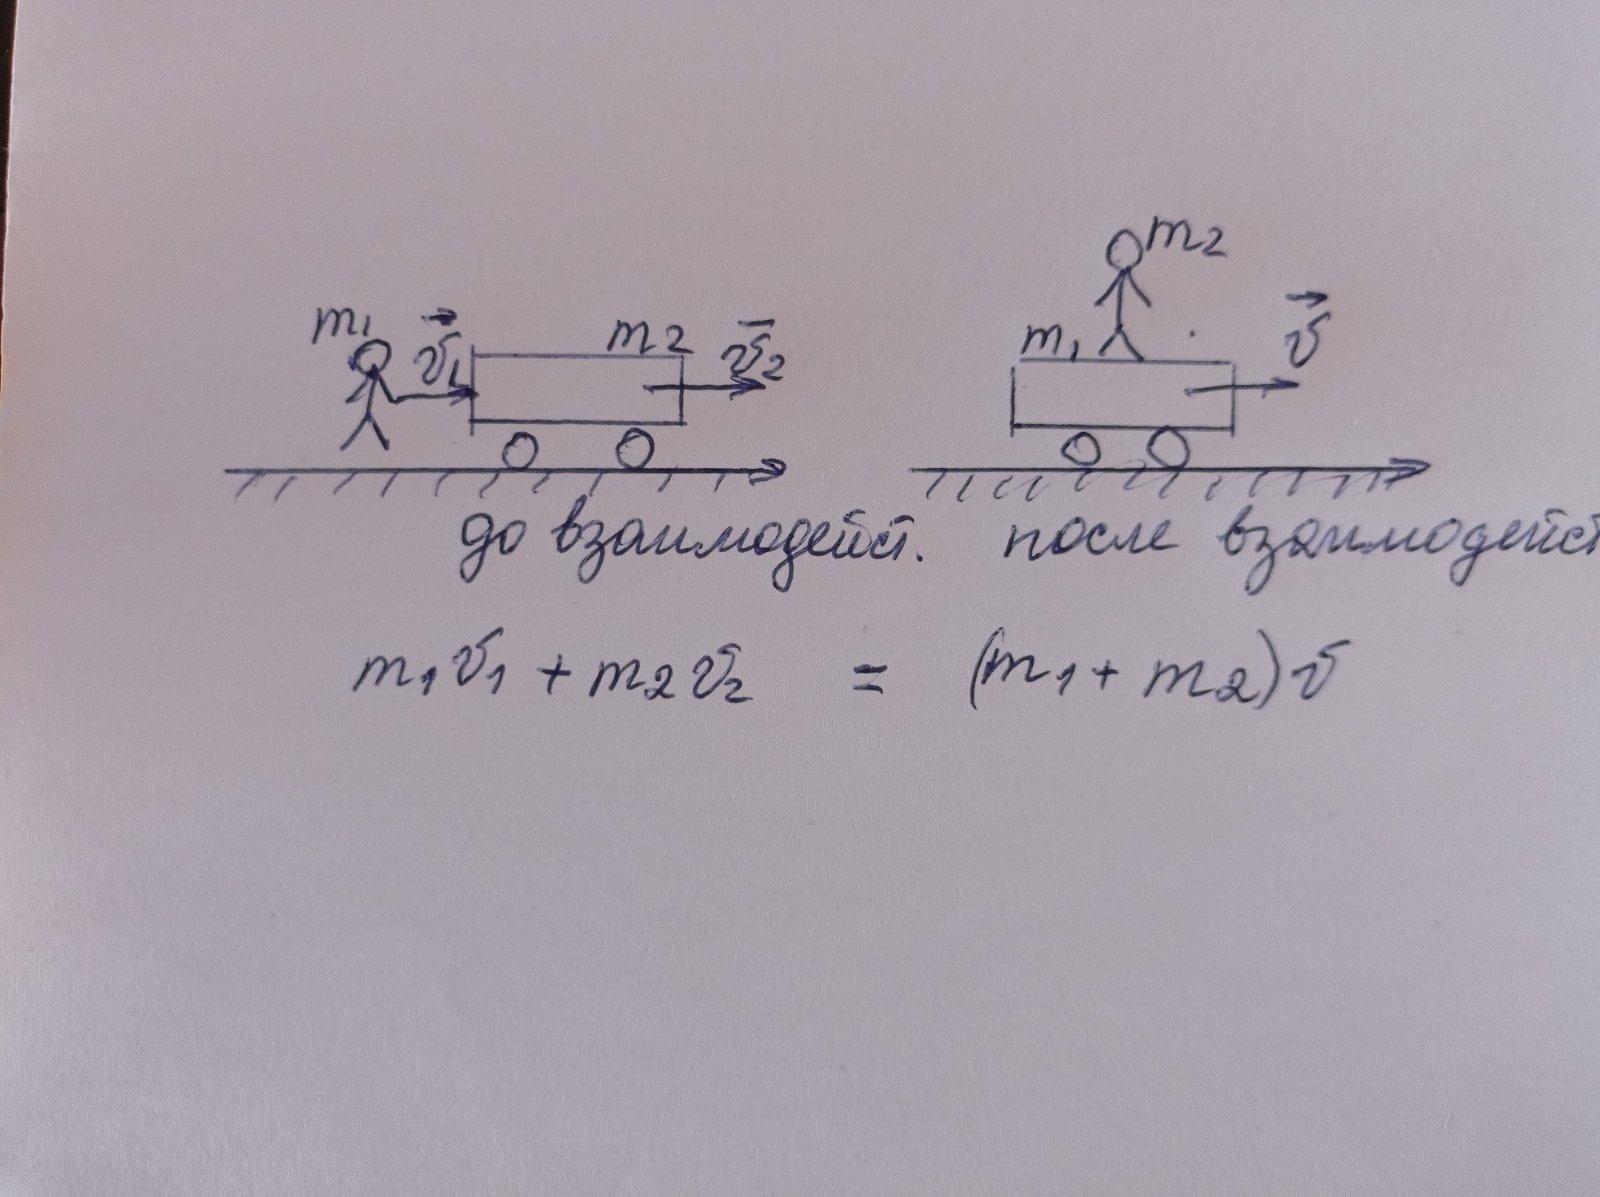 m₂
m₁ v⃗₁ m₂ v̅₂ m₁ v⃗
до взаимодейст. после взаимодейст
m₁v₁ + m₂v₂ = (m₁ + m₂)v